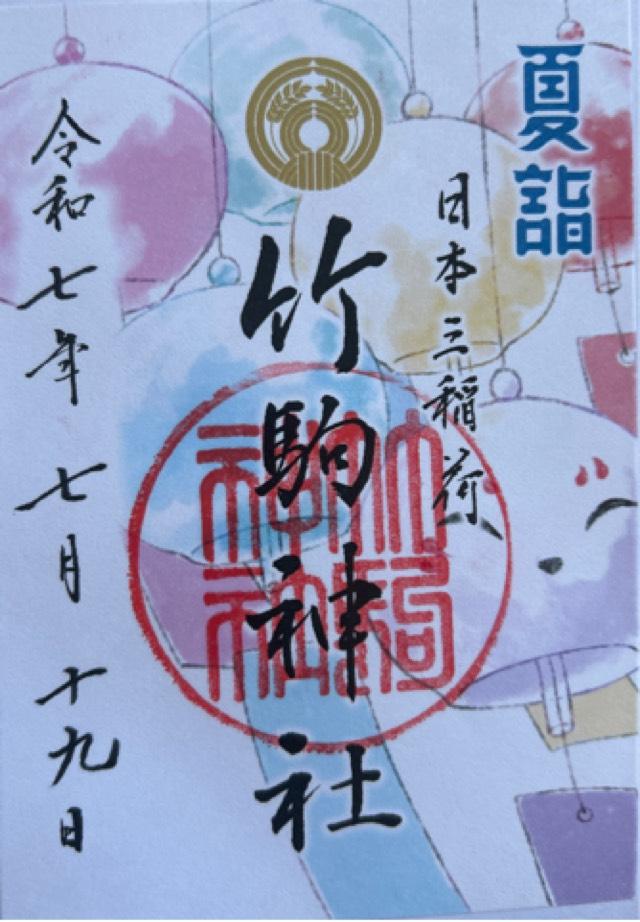 夏詣
日本三稲荷
竹駒神社
竹駒神社
令和七年七月十九日